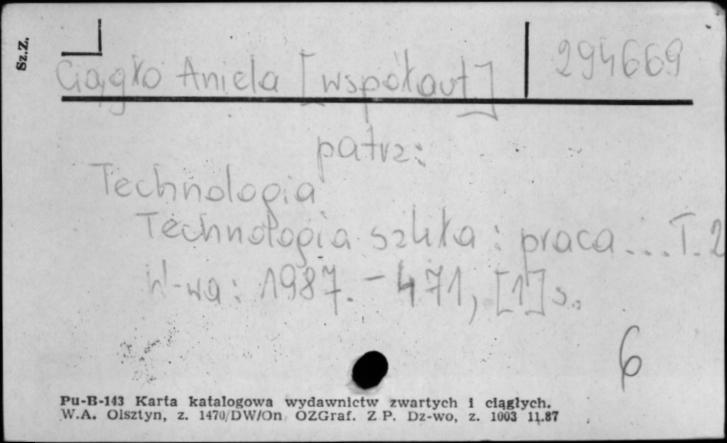 Sz.Z.
Ciągło Aniela [współaut] 294669
patrz:
Technologia
Technologia szkła : praca ... T. 2
W-wa : 1987. - 471, [1] s.
6
Pu-B-143 Karta katalogowa wydawnictw zwartych i ciągłych.
W.A. Olsztyn, z. 1470/DW/On OZGraf. Z P. Dz-wo, z. 1003 11.87